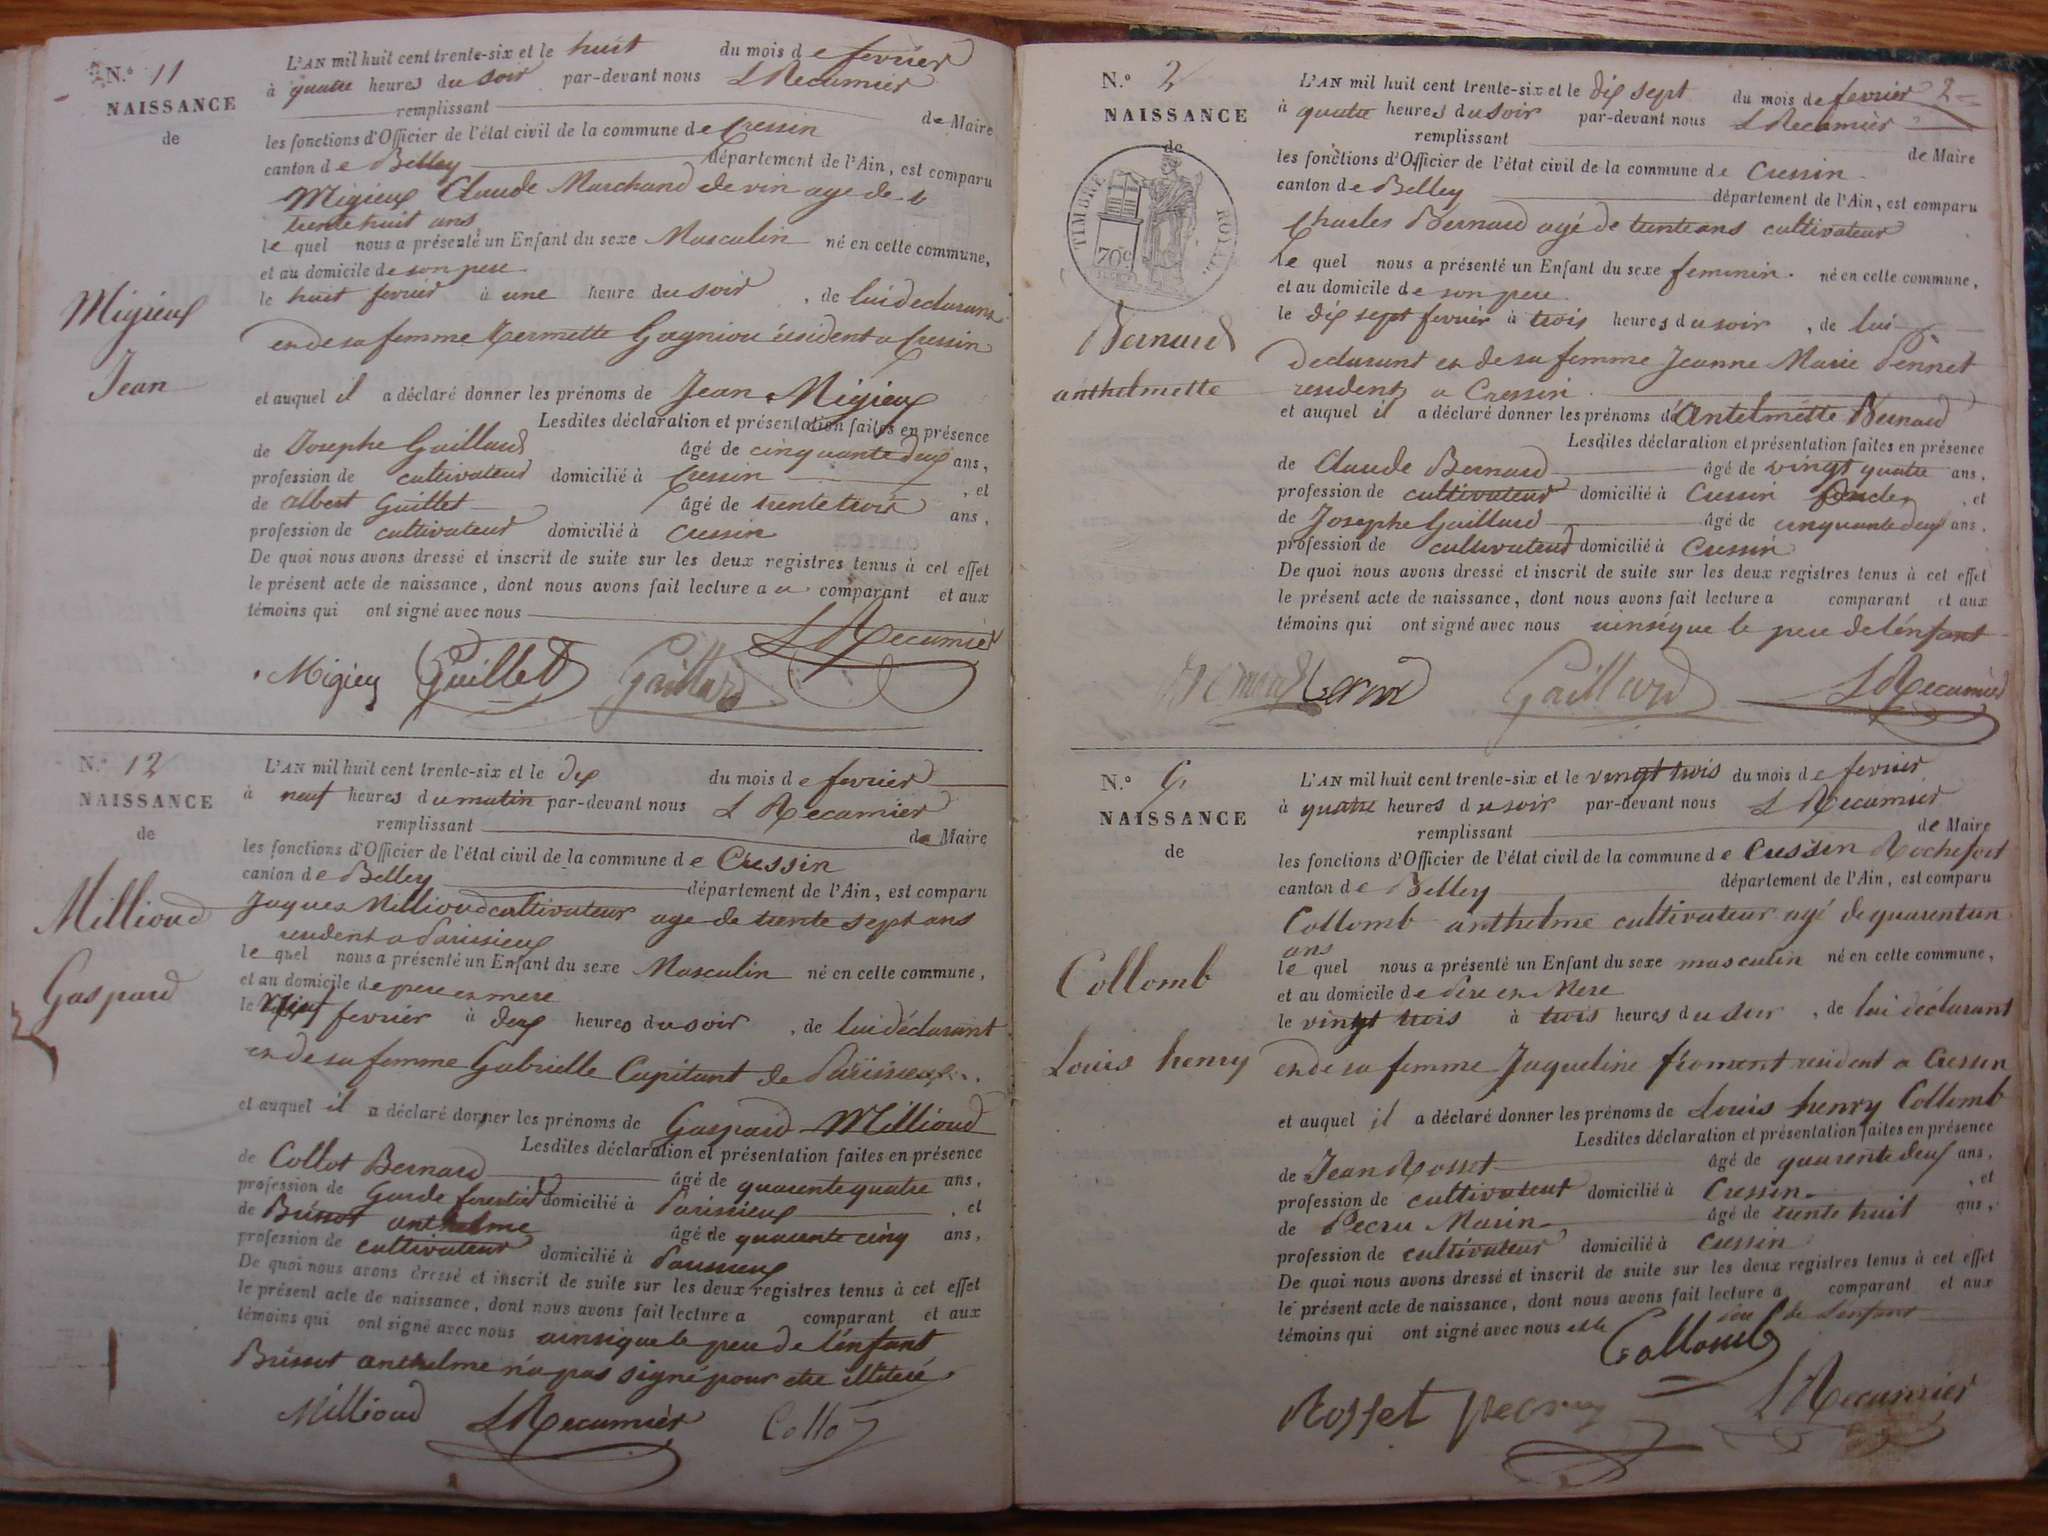 N.º 11
NAISSANCE
de
Migieux
Jean
L'AN mil huit cent trente-six et le huit du mois de fevrier
à quatre heures du soir par-devant nous L Recamier
remplissant de Maire
les fonctions d'Officier de l'état civil de la commune de Cressin
canton de Belley département de l'Ain, est comparu
Migieux Claude Marchand de vin age de
trente huit ans
le quel nous a présenté un Enfant du sexe Masculin né en cette commune,
et au domicile de son pere
le huit fevrier à une heure du soir, de lui declarant
et de sa femme Gagniou résident a Cressin
et auquel il a déclaré donner les prénoms de Jean Migieux
Lesdites déclaration et présentation faites en présence
de Josephe Gaillard âgé de cinquante deux ans,
profession de cultivateur domicilié à Cressin, et
de albert Guillet âgé de trente trois ans,
profession de cultivateur domicilié à Cressin
De quoi nous avons dressé et inscrit de suite sur les deux registres tenus à cet effet
le présent acte de naissance, dont nous avons fait lecture a u comparant et aux
témoins qui ont signé avec nous
L Recamier
Migieux Guillet Gaillard
N.º 12
NAISSANCE
de
Millioud
Gaspard
L'AN mil huit cent trente-six et le dix du mois de fevrier
à neuf heures du matin par-devant nous L Recamier
remplissant de Maire
les fonctions d'Officier de l'état civil de la commune de Cressin
canton de Belley département de l'Ain, est comparu
Jaques Millioud cultivateur age de trente sept ans
resident a Parissieux
le quel nous a présenté un Enfant du sexe Masculin né en cette commune,
et au domicile de pere et mere
le neuf fevrier à deux heures du soir, de lui déclarant
et de sa femme Gabrielle Capitant de Parissieux
et auquel il a déclaré donner les prénoms de Gaspard Millioud
Lesdites déclaration et présentation faites en présence
de Collot Bernard âgé de quarente quatre ans,
profession de Garde forestier domicilié à Parissieux, et
de Brissot anthelme âgé de quarente cinq ans,
profession de cultivateur domicilié à Parissieux
De quoi nous avons dressé et inscrit de suite sur les deux registres tenus à cet effet
le présent acte de naissance, dont nous avons fait lecture a comparant et aux
témoins qui ont signé avec nous ainsi que le pere de l'enfant
Brissot anthelme n'a pas signé pour etre illiteré
Millioud L Recamier Collot
N.º 2
NAISSANCE
de
TIMBRE ROYAL
70c
Bernard
anthelmette
L'AN mil huit cent trente-six et le dix sept du mois de fevrier 2
à quatre heures du soir par-devant nous L Recamier
remplissant de Maire
les fonctions d'Officier de l'état civil de la commune de Cressin
canton de Belley département de l'Ain, est comparu
Charles Bernard agé de trente ans cultivateur
le quel nous a présenté un Enfant du sexe feminin né en cette commune,
et au domicile de son pere
le dix sept fevrier à trois heures du soir, de lui
declarant et de sa femme Jeanne Marie Pennet
resident a Cressin
et auquel il a déclaré donner les prénoms d'Antelmette Bernard
Lesdites déclaration et présentation faites en présence
de Claude Bernard âgé de vingt quatre ans,
profession de cultivateur domicilié à Cressin, et
de Josephe Gaillard âgé de cinquante deux ans.
profession de cultivateur domicilié à Cressin
De quoi nous avons dressé et inscrit de suite sur les deux registres tenus à cet effet
le présent acte de naissance, dont nous avons fait lecture a comparant et aux
témoins qui ont signé avec nous ainsi que le pere de l'enfant
Gaillard L Recamier
N.º
NAISSANCE
de
Collomb
Louis henry
L'AN mil huit cent trente-six et le vingt trois du mois de fevrier
à quatre heures du soir par-devant nous L Recamier
remplissant de Maire
les fonctions d'Officier de l'état civil de la commune de Cressin Rochefort
canton de Belley département de l'Ain, est comparu
Collomb anthelme cultivateur agé de quarent un
ans
le quel nous a présenté un Enfant du sexe masculin né en cette commune,
et au domicile de Pere et Mere
le vingt trois à trois heures du soir, de lui déclarant
et de sa femme Jaqueline froment resident a Cressin
et auquel il a déclaré donner les prénoms de Louis henry Collomb
Lesdites déclaration et présentation faites en présence
de Jean Rosset âgé de quarente deux ans,
profession de cultivateur domicilié à Cressin, et
de Pecru Marin âgé de trente huit ans,
profession de cultivateur domicilié à Cressin
De quoi nous avons dressé et inscrit de suite sur les deux registres tenus à cet effet
le présent acte de naissance, dont nous avons fait lecture a comparant et aux
témoins qui ont signé avec nous et le pere de l'enfant
Collomb
Rosset Pecru L Recamier